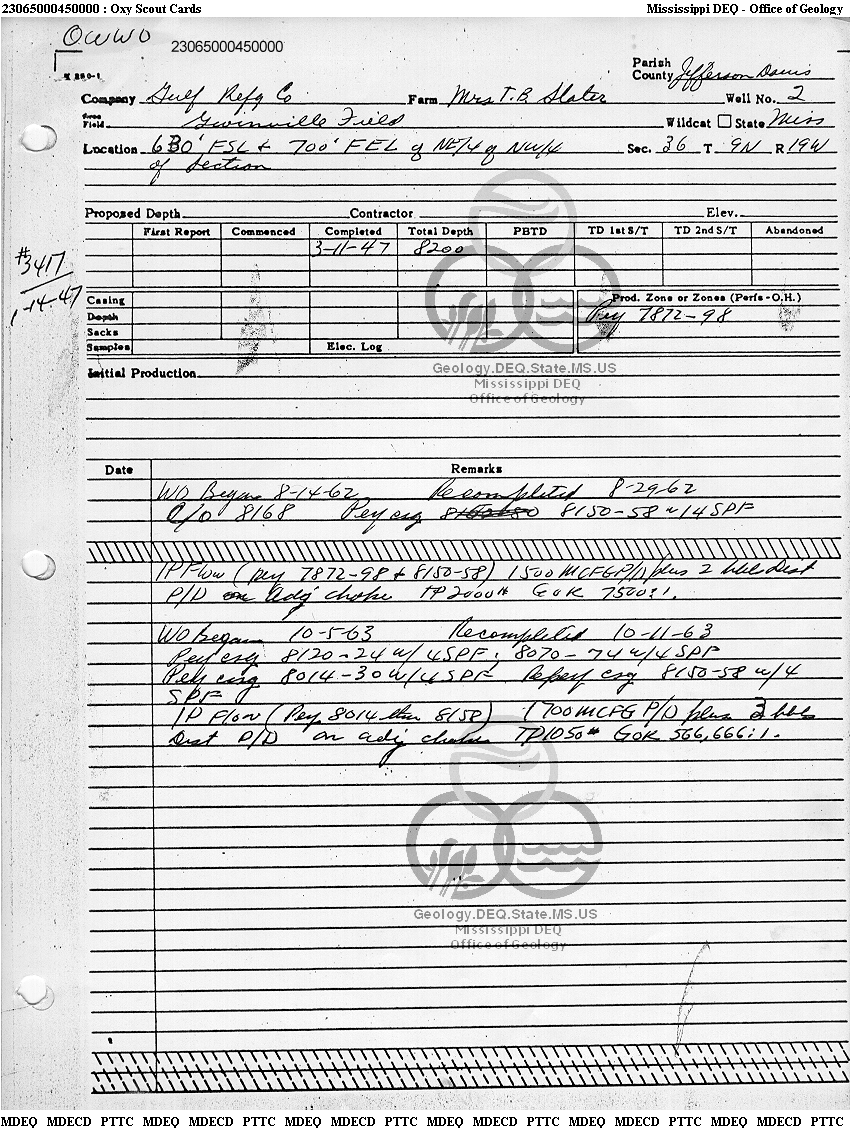 23065000450000 : Oxy Scout Cards Mississippi DEQ - Office of Geology
OWWO 23065000450000
Parish
County Jefferson Davis
Company Gulf Refg Co Farm Mrs T.B. Slater Well No. 2
Area
Field Gwinville Field Wildcat State Miss
Location 630' FSL & 700' FEL of NE/4 of NW/4 Sec. 36 T 9N R 19W
of Section
Proposed Depth Contractor Elev.
First Report Commenced Completed Total Depth PBTD TD 1st S/T TD 2nd S/T Abandoned
3-11-47 8200
#3417
1-14-47
Casing Prod. Zone or Zones (Perfs - O.H.)
Depth Perf 7872-98
Sacks
Samples Elec. Log
Geology.DEQ.State.MS.US
Initial Production
Mississippi DEQ
Office of Geology
Date Remarks
WO Began 8-14-62 Recompleted 8-29-62
C/O 8168 Perf csg 8150-58 w/4 SPF
IP Flow (perf 7872-98 & 8150-58) 1500 MCFGP/D plus 2 bbl Dist
P/D on adj choke TP 2000# GOR 7500:1.
WO Began 10-5-63 Recompleted 10-11-63
Perf csg 8120-24 w/4 SPF; 8070-74 w/4 SPF
Perf csg 8014-30 w/4 SPF Reperf csg 8150-58 w/4
SPF
IP Flow (Perf 8014 thru 8158) 1700 MCFG P/D plus 3 bbls
Dist P/D on adj choke TP 1050# GOR 566,666:1.
Geology.DEQ.State.MS.US
Mississippi DEQ
Office of Geology
MDEQ MDECD PTTC MDEQ MDECD PTTC MDEQ MDECD PTTC MDEQ MDECD PTTC MDEQ MDECD PTTC MDEQ MDECD PTTC